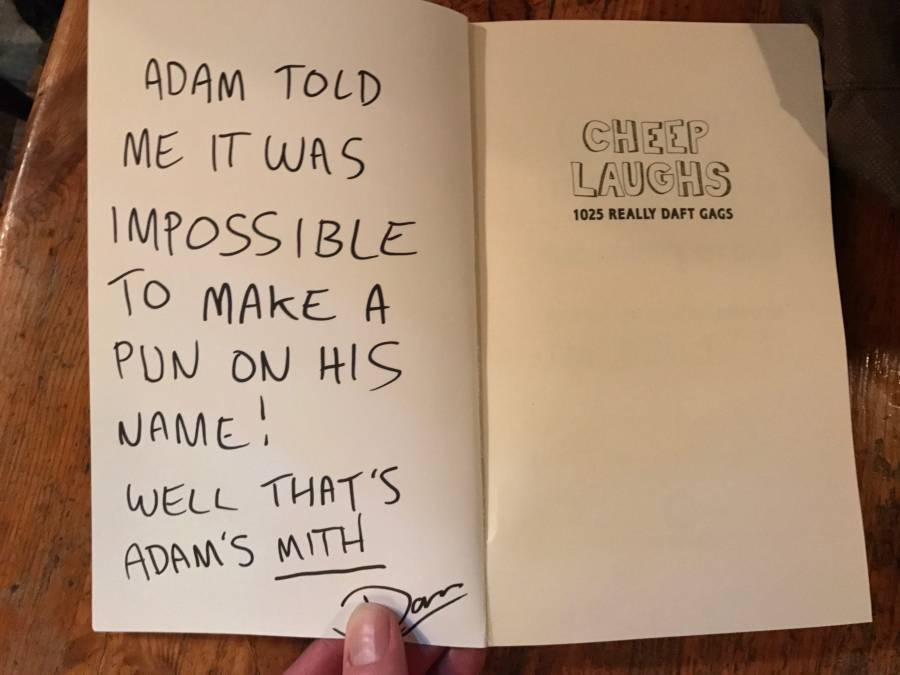 ADAM TOLD
ME IT WAS
IMPOSSIBLE
TO MAKE A
PUN ON HIS
NAME!
WELL THAT'S
ADAM'S MITH
CHEEP
LAUGHS
1025 REALLY DAFT GAGS